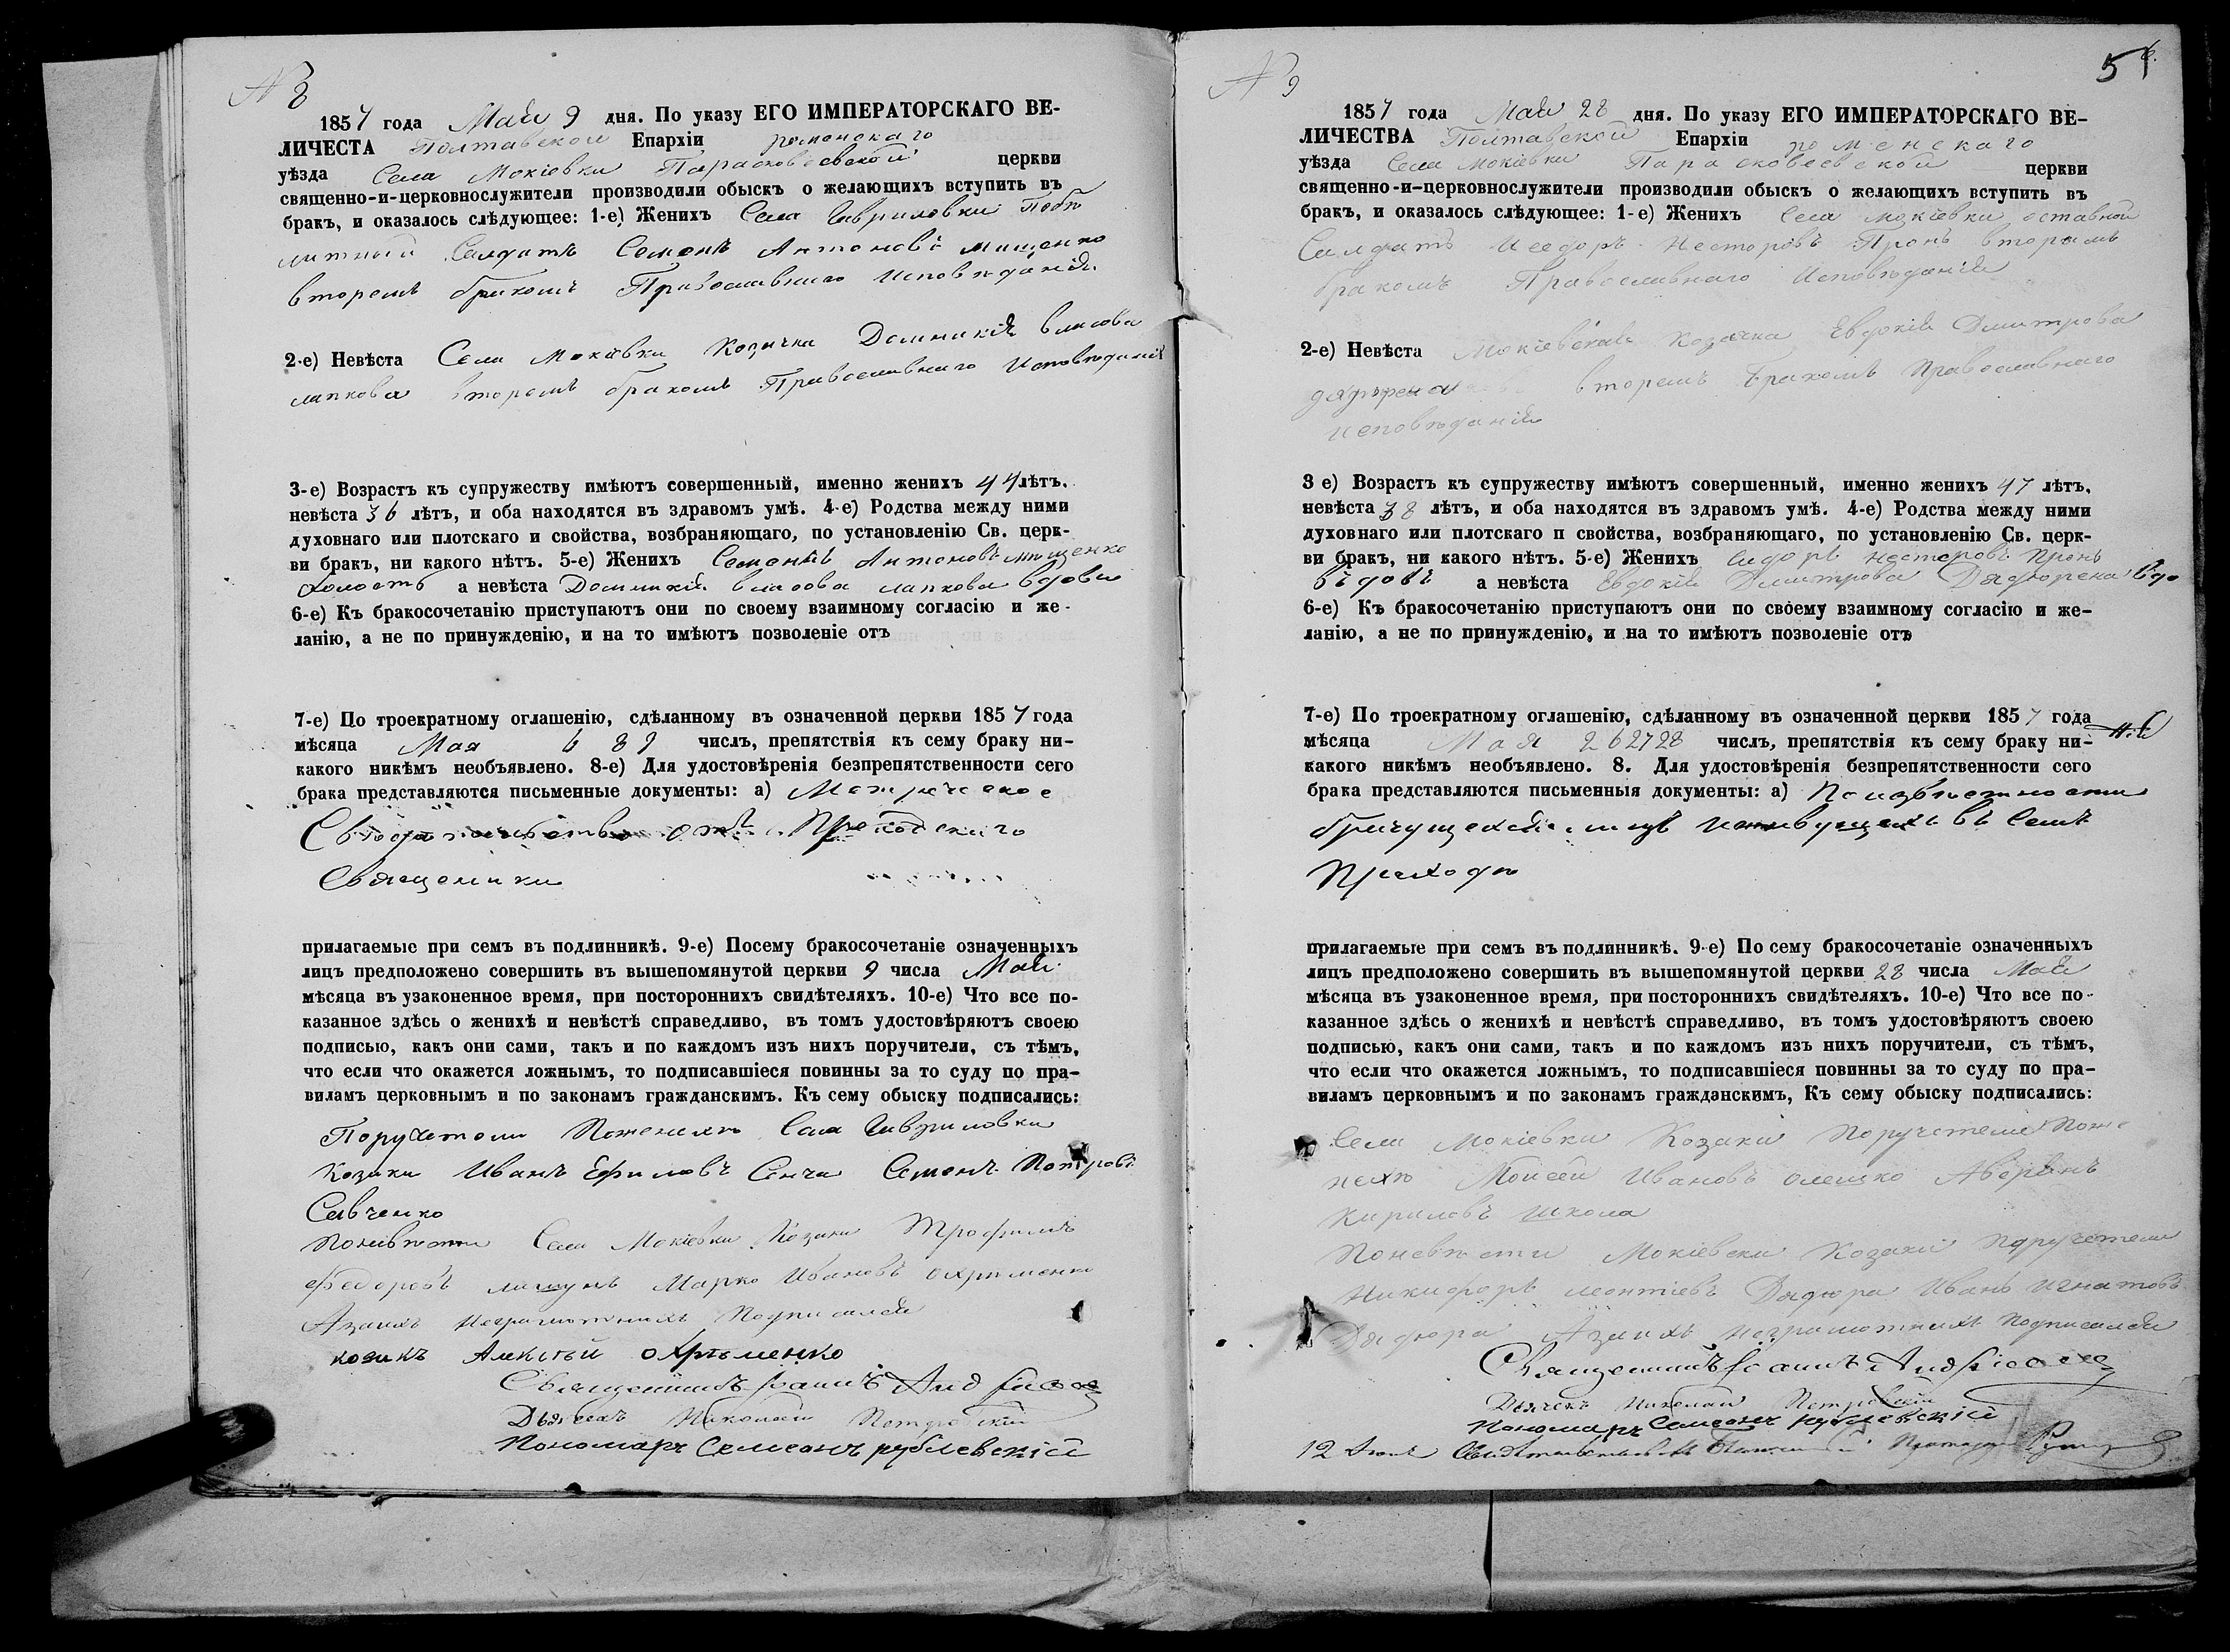 N 8
1857 года Мая 9 дня. По указу ЕГО ИМПЕРАТОРСКАГО ВЕ-
ЛИЧЕСТА Полтавской Епархіи роменскаго
уѣзда Села Мокіевки Парасковеевской церкви
священно-и-церковнослужители производили обыскъ о желающихъ вступить въ
бракъ, и оказалось слѣдующее: 1-е) Женихъ Села Гавриловки
Солдатъ Семенъ Антоновъ Мищенко
вторемъ бракомъ Православнаго Исповѣданія
2-е) Невѣста Села Мокіевки Козачка Домникія власова
лапкова вторемъ бракомъ Православнаго Исповѣданія
3-е) Возрастъ къ супружеству имѣютъ совершенный, именно женихъ 44 лѣтъ.
невѣста 36 лѣтъ, и оба находятся въ здравомъ умѣ. 4-е) Родства между ними
духовнаго или плотскаго и свойства, возбраняющаго, по установленію Св. церк-
ви бракъ, ни какого нѣтъ. 5-е) Женихъ Семенъ Антоновъ мищенко
холостъ а невѣста Домникія власова лапкова вдова
6-е) Къ бракосочетанію приступаютъ они по своему взаимному согласію и же-
ланію, а не по принужденію, и на то имѣютъ позволеніе отъ
7-е) По троекратному оглашенію, сдѣланному въ означенной церкви 1857 года
мѣсяца Мая 6 8 9 числъ, препятствія къ сему браку ни-
какого никѣмъ необъявлено. 8-е) Для удостовѣренія безпрепятственности сего
брака представляются письменные документы: а) Метрическое
Свидѣтельство отъ Приходскаго
Священика
прилагаемые при семъ въ подлинникѣ. 9-е) Посему бракосочетаніе означенныхъ
лицъ предположено совершить въ вышепомянутой церкви 9 числа Мая
мѣсяца въ узаконенное время, при постороннихъ свидѣтеляхъ. 10-е) Что все по-
казанное здѣсь о женихѣ и невѣстѣ справедливо, въ томъ удостовѣряютъ своею
подписью, какъ они сами, такъ и по каждомъ изъ нихъ поручители, съ тѣмъ,
что если что окажется ложнымъ, то подписавшіеся повинны за то суду по пра-
виламъ церковнымъ и по законамъ гражданскимъ. Къ сему обыску подписались:
Поручители Поженихѣ Села Гавриловки
Козаки Иванъ Ефимовъ Сенча Семенъ Петровъ
Савченко
Поневѣсти Села Мокіевки Козаки Трофимъ
Федоровъ лишунъ Марко Ивановъ охрименко
Азаихъ неграмотнихъ Подписался
козакъ Алексѣй охрѣменко
Священникъ Іоаннъ
Дьячекъ Николай Петровскій
Пономарь Семеонъ рублевскій
N 9
51
1857 года Мая 28 дня. По указу ЕГО ИМПЕРАТОРСКАГО ВЕ-
ЛИЧЕСТВА Полтавской Епархіи роменскаго
уѣзда Села Мокіевки Парасковеевской церкви
священно-и-церковнослужители производили обыскъ о желающихъ вступить въ
бракъ, и оказалось слѣдующее: 1-е) Женихъ Села Мокіевки оставной
Салдатъ Несторовъ Пронь вторимъ
бракомъ Православнаго Исповѣданія
2-е) Невѣста Мокіевская Козачка Евдокія Дмитрова
вторемъ бракомъ Православнаго
исповѣданія
3 е) Возрастъ къ супружеству имѣютъ совершенный, именно женихъ 47 лѣтъ.
невѣста 38 лѣтъ, и оба находятся въ здравомъ умѣ. 4-е) Родства между ними
духовнаго или плотскаго п свойства, возбраняющаго, по установленію Св. церк-
ви бракъ, ни какого нѣтъ. 5-е) Женихъ Сидоръ несторовъ Пронь
въдовъ а невѣста Евдокія Дмитрова Дядюрена вдо
6-е) Къ бракосочетанію приступаютъ они по своему взаимному согласію и же-
ланію, а не по принужденію, и на то имѣютъ позволеніе отъ
7-е) По троекратному оглашенію, сдѣланному въ означенной церкви 1857 года
мѣсяца Мая 26 27 28 числъ, препятствія къ сему браку ни-
какого никѣмъ необъявлено. 8. Для удостовѣренія безпрепятственности сего
брака представляются письменныя документы: а) Поизвѣстности
въ Семъ
Приходѣ
прилагаемые при семъ въ подлинникѣ. 9-е) По сему бракосочетаніе означенныхъ
лицъ предположено совершить въ вышепомянутой церкви 28 числа Мая
мѣсяца въ узаконенное время, при постороннихъ свидѣтеляхъ. 10-е) Что все по-
казанное здѣсь о женихѣ и невѣстѣ справедливо, въ томъ удостовѣряютъ своею
подписью, какъ они сами, такъ и по каждомъ изъ нихъ поручители, съ тѣмъ,
что если что окажется ложнымъ, то подписавшіеся повинны за то суду по пра-
виламъ церковнымъ и по законамъ гражданскимъ, Къ сему обыску подписались:
Села Мокіевки Козаки Поручители Поже
нехѣ Моисей Ивановъ олешко Аверкѣнъ
Кириловъ школа
Поневѣсти Мокіевски Козаки Поручетели
Никифоръ леонтіевъ Дядюра Иванъ Игнатовъ
Дядюра Азаихъ неграмотнихъ Подписался
Священникъ Іоаннъ
Дьячекъ Николай Петровскій
Пономарь Семеонъ рублевскій
12